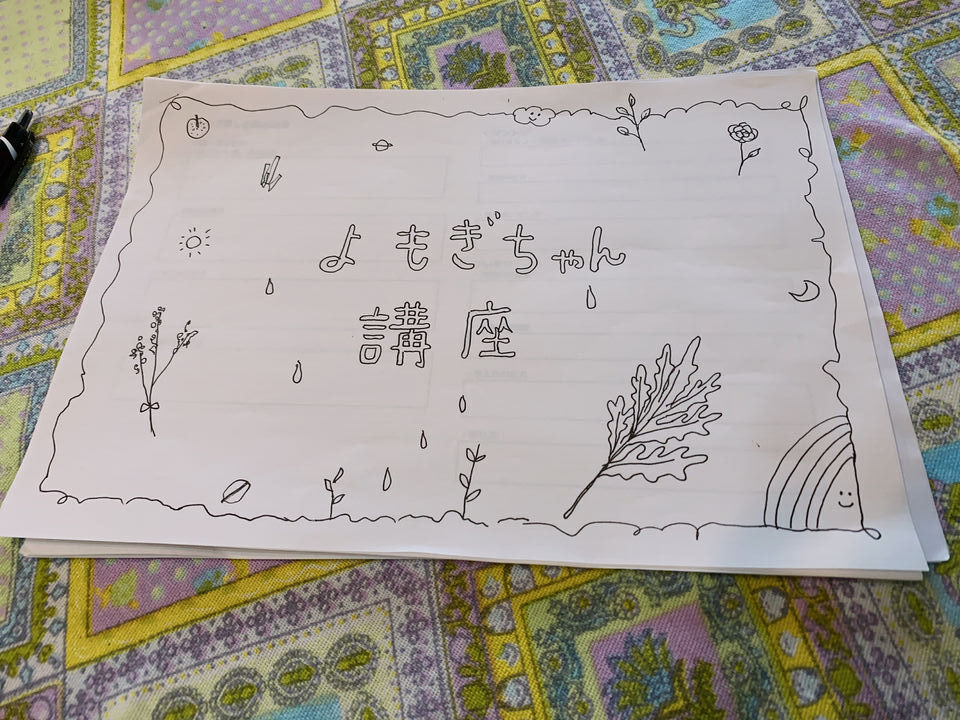 よもぎちゃん
講座